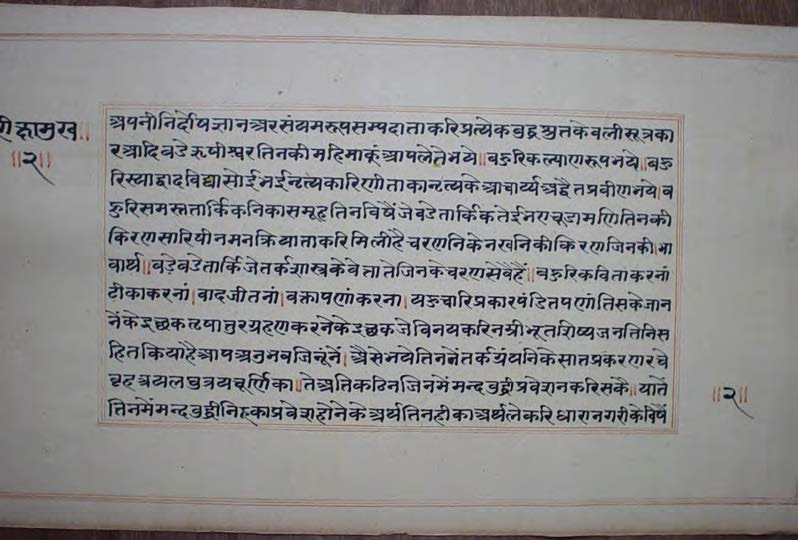 री॰ प्रामुख॥
॥२॥
अपनीनिर्दोषज्ञानअरसंयमरूपसम्पदाताकरिप्रत्येकबुद्धश्रुतकेवलीसूत्रका
रआदिबडेरुषीश्वरतिनकीमहिमाकूंआपलेतेभये॥बहुरिकल्याणरूपभये॥बहु
रिस्याद्वादविद्यासोईभईनृत्यकारिणीताकानृत्यकेआचार्य्यअद्वैतप्रवीणभये॥ब
हुरिसमस्ततार्किकनिकासमूहतिनविषैंजेबडेतार्किकतेईभएचूडामणितिनकी
किरणसारिषीनमनक्रियाताकरिमिलीहैचरणनिकेनखनिकीकिरणजिनकी।भा
वार्थ॥बड़ेबडेतार्किजेतर्कशास्त्रकेवेत्तातेजिनकेचरणसेवैहैं॥बहुरिकविताकरनां
टीकाकरनां।वादजीतनां।वक्तापणांकरना।यहच्यारिप्रकारपंडितपणांतिसकेजान
नेंकेइछकतथातुरग्रहणकरनेकेइछकजेविनयकरिनम्रीभूतशिष्यजनतिनिस
हितकियाहैआपअनुभवजिनूंनें।अैसेभयेतिननेंतर्कग्रंथनिकेसातप्रकरणरचे
बृहत्रयलघुत्रयचूर्णिका॥तेअतिकठिनजिनमेंमन्दबुद्धीप्रवेशनकरिसकै॥यातें
तिनमेंमन्दबुद्धीनिहूकाप्रवेशहोनेकेअर्थतिनहीकाअर्थलेकरिधारानगरीकेविषैं
॥२॥